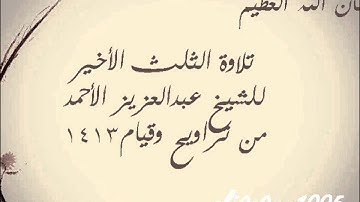 ان الله العظيم
تلاوة الثلث الأخير
للشيخ عبدالعزيز الأحمد
من تراويح وقيام ١٤١٣